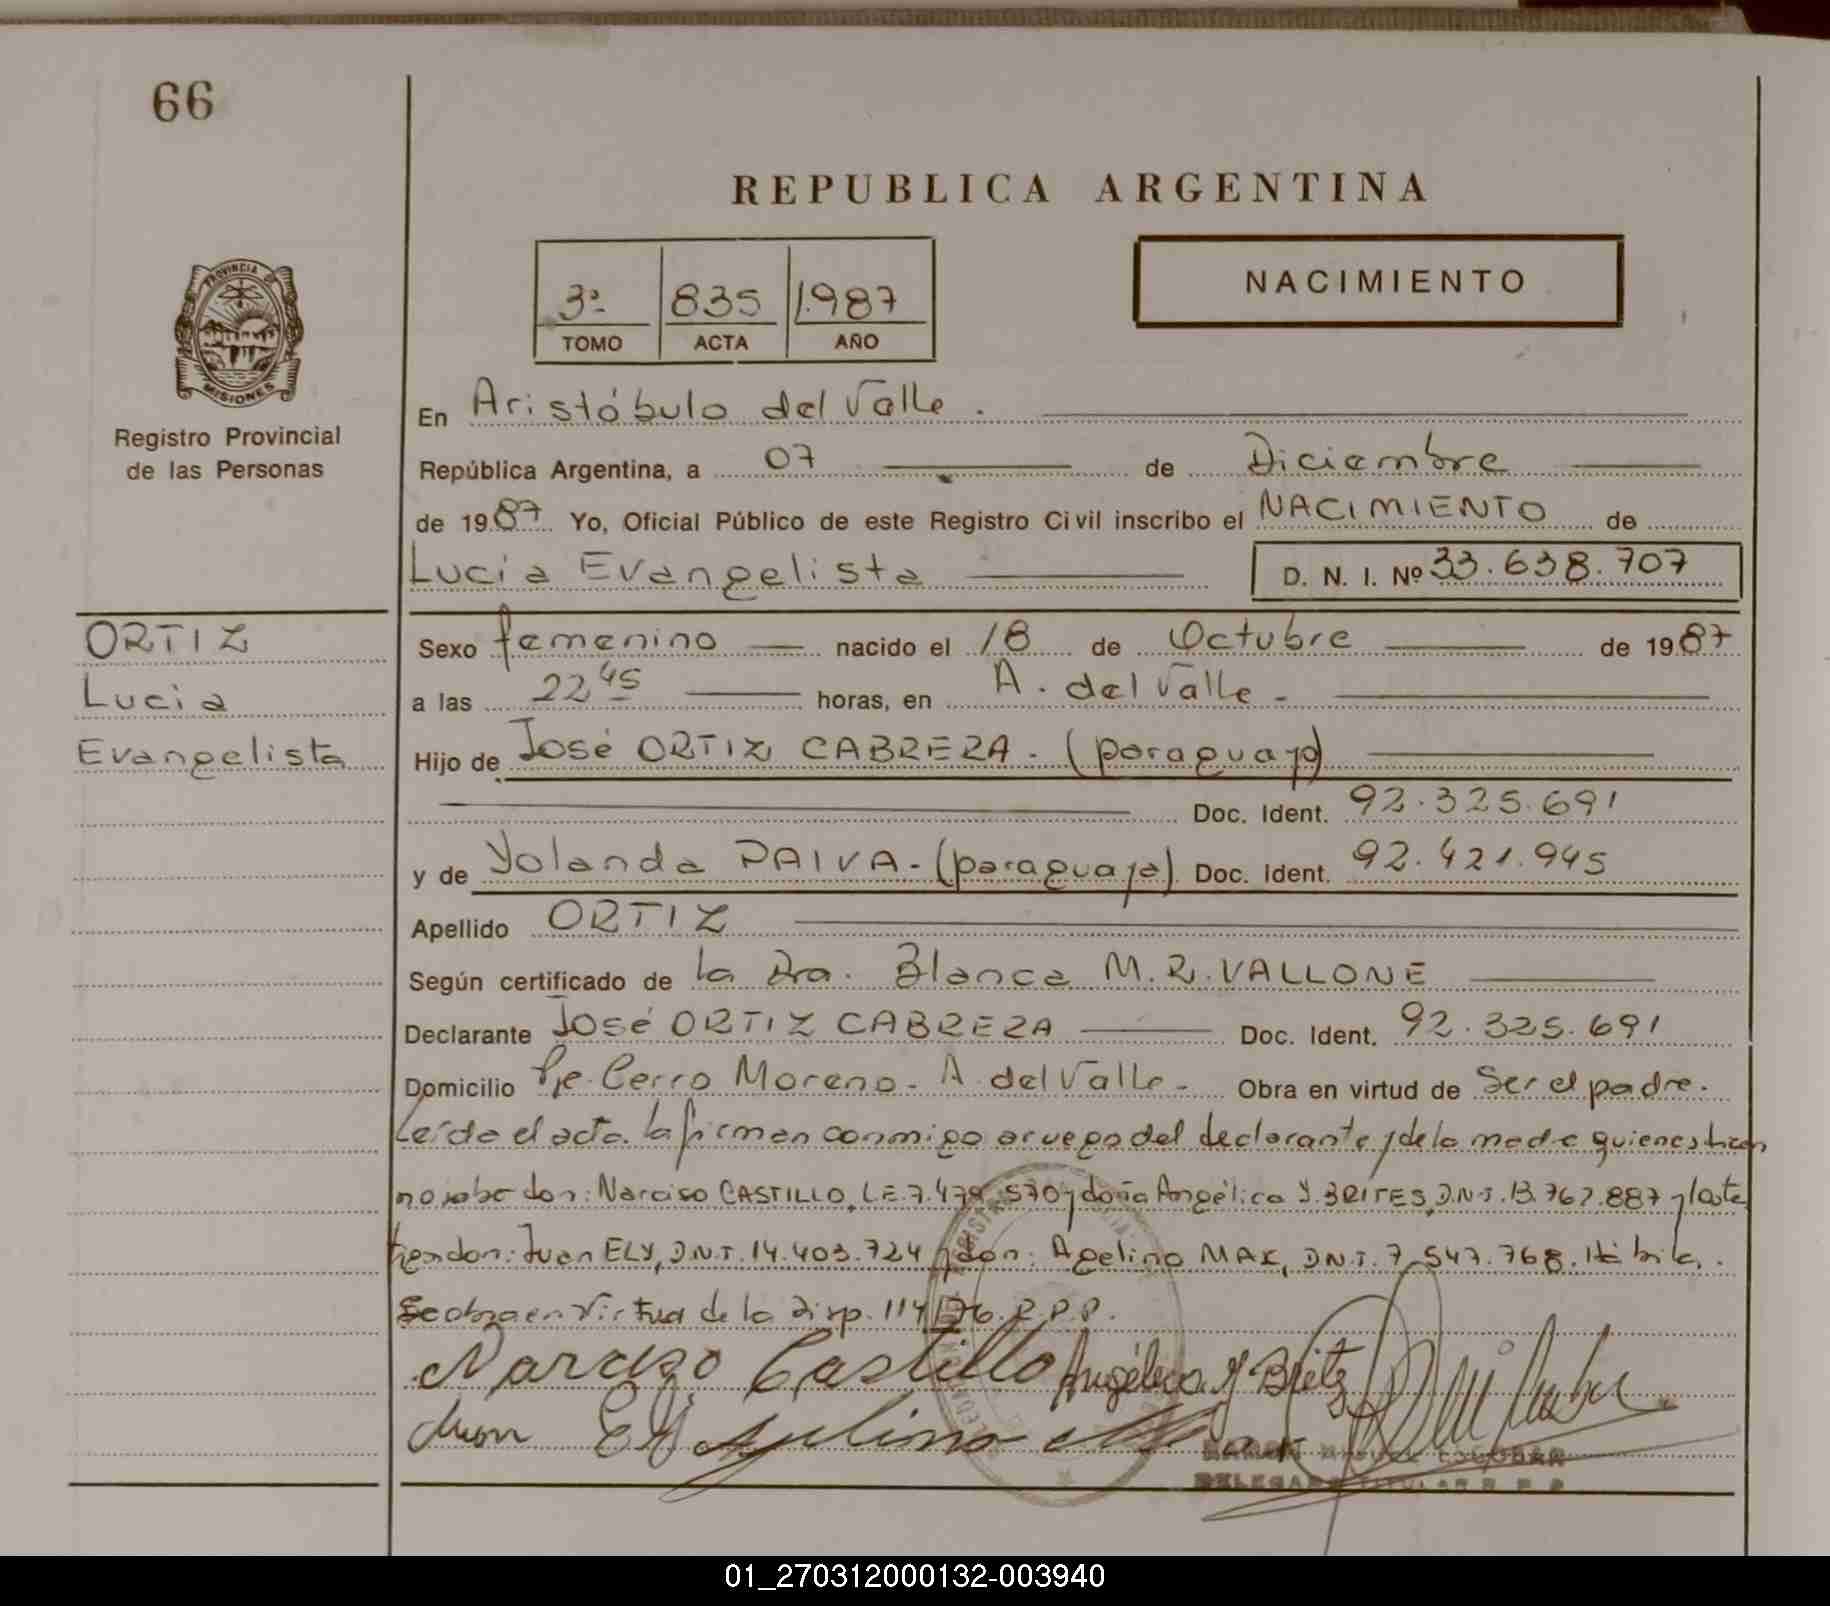 66
REPUBLICA ARGENTINA
PROVINCIA DE
MISIONES
Registro Provincial
de las Personas
3º 835 1.987
TOMO ACTA AÑO
NACIMIENTO
En Aristóbulo del Valle.
República Argentina, a 07 de Diciembre
de 1987 Yo, Oficial Público de este Registro Civil inscribo el NACIMIENTO de
Lucia Evangelista D. N. I. Nº 33.638.707
ORTIZ
Lucia
Evangelista
Sexo femenino nacido el 18 de Octubre de 1987
a las 22 45 horas, en A. del Valle -
Hijo de José ORTIZ CABRERA - (paraguayo)
Doc. Ident. 92.325.691
y de Yolanda PAIVA - (paraguaya) Doc. Ident. 92.421.945
Apellido ORTIZ
Según certificado de la Dra. Blanca M. R. VALLONE
Declarante José ORTIZ CABRERA Doc. Ident. 92.325.691
Domicilio Pje. Cerro Moreno - A. del Valle - Obra en virtud de Ser el padre.
Leída el acta. la firman conmigo a ruego del declarante y de la madre quienes dicen
no saber don: Narciso CASTILLO, L.E. 7.479.570 y doña Angélica Y. BRITES, D.N.I. 13.762.887 y los te
tigos don: Juan ELY, D.N.I. 14.403.724 y don: Agelino MAX, D.N.I. 7.547.768.
Se obra en Virtud de la Disp. 114/76. R.P.P.
Narciso Castillo Angélica Y Britez
Juan Ely Agelino
RAMON MIGUEL ESCOBAR
DELEGADO TITULAR R P P
01_270312000132-003940